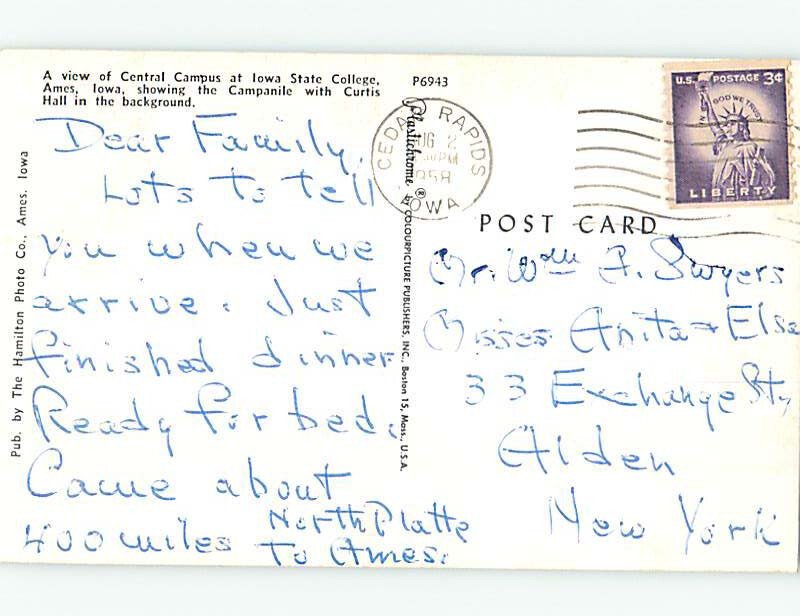 A view of Central Campus at Iowa State College,
Ames, Iowa, showing the Campanile with Curtis
Hall in the background.
P6943
Dear Family,
Lots to tell
you when we
arrive. Just
finished dinner
Ready for bed.
Came about
400 miles North Platte
to Ames.
Pub. by The Hamilton Photo Co., Ames, Iowa
Plastichrome ® by COLOURPICTURE PUBLISHERS, INC., Boston 15, Mass., U.S.A.
CEDAR RAPIDS
AUG 2
PM
1958
IOWA
U.S. POSTAGE 3¢
IN GOD WE TRUST
LIBERTY
POST CARD
Mr. Wm A. Swyers
Misses Anita + Elsa
33 Exchange St,
Alden
New York